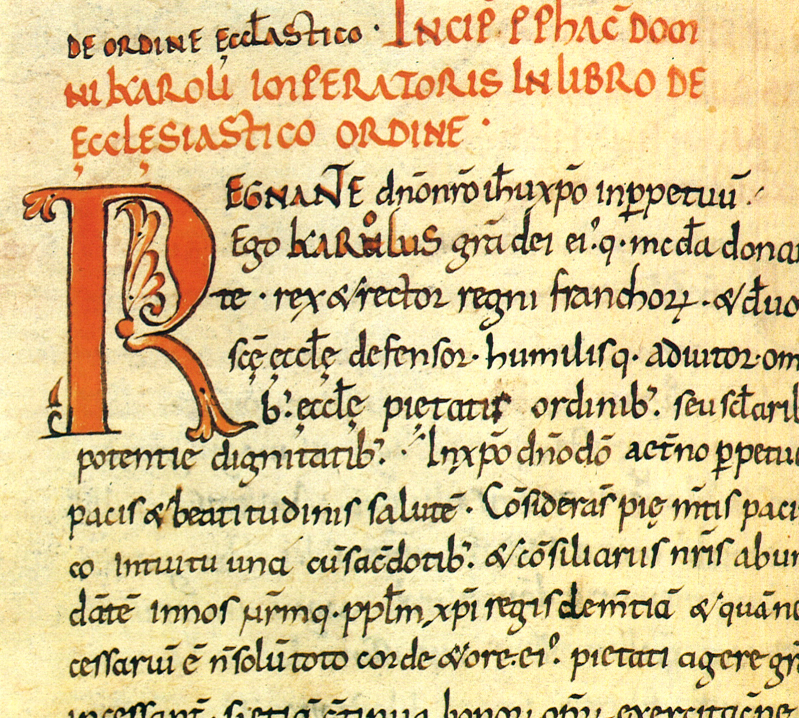 DE ORDINE ęccłAStico · INCIP̄ P PħAC̄ DOM
NI KAROLI IMPERATORIS IN LIBRO DE
ĘCCLĘSIAStICO ORDINE ·
REGNANTE dn̄o nr̄o ih̄u xp̄o in ꝑpetuū
Ego KAROLUS gr̄a dei ei᾿ q· mcd̄a donan
te · rex & rector regni franchoꝝ · & d̄uo
scę̄ ęccłę defensor · humilisq· adiutor · om
b᾿ · ęccłę piętatis ordinib᾿ · seu scłarib
potentię dignitatib᾿ · In xp̄o dn̄o dō aet̄no ꝑpetuę
pacis & beatitudinis salutē · Cōsiderās pię m̄tis paci
co intuitu una cū sac̄dotib᾿ · & cōsiliariis nr̄is abun
dātē in nos ur̄mq· ppl̄m xp̄i regis clem̄tiā & quā nę
cessariū ē n̄ solū toto corde & ore · ei᾿ pietati agere gr̄
incessant̄ · s; etiā c̄tinua bonoꝝ opꝝ exercitac̄ne